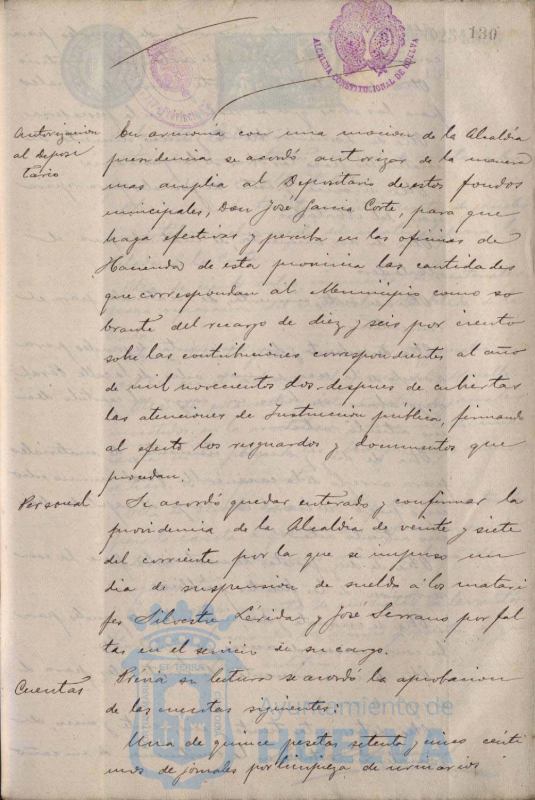 130
ALCALDIA CONSTITUCIONAL DE HUELVA
Autorizacion
al deposi
tario
En armonía con una mocion de la Alcaldía
presidencia se acordó autorizar de la manera
mas amplia al Depositario de estos fondos
municipales, Don José García Corte, para que
haga efectivas y perciba en las oficinas de
Hacienda de esta provincia las cantidades
que correspondan al Municipio como so
brante del recargo de diez y seis por ciento
sobre las contribuciones correspondientes al año
de mil novecientos dos despues de cubiertas
las atenciones de Instruccion pública, firmando
al efecto los resguardos y documentos que
procedan.
Personal
Se acordó quedar enterado y confirmar la
providencia de la Alcaldía de veinte y siete
del corriente por la que se impuso un
dia de suspension de sueldo á los matari
fes Silvestre Lérida y José Serrano por fal
tas en el servicio de su cargo.
Cuentas
Previa su lectura se acordó la aprobacion
de las cuentas siguientes.
Una de quince pesetas setenta y cinco cénti
mos de jornales por limpieza de urinarios
Ayuntamiento de
HUELVA